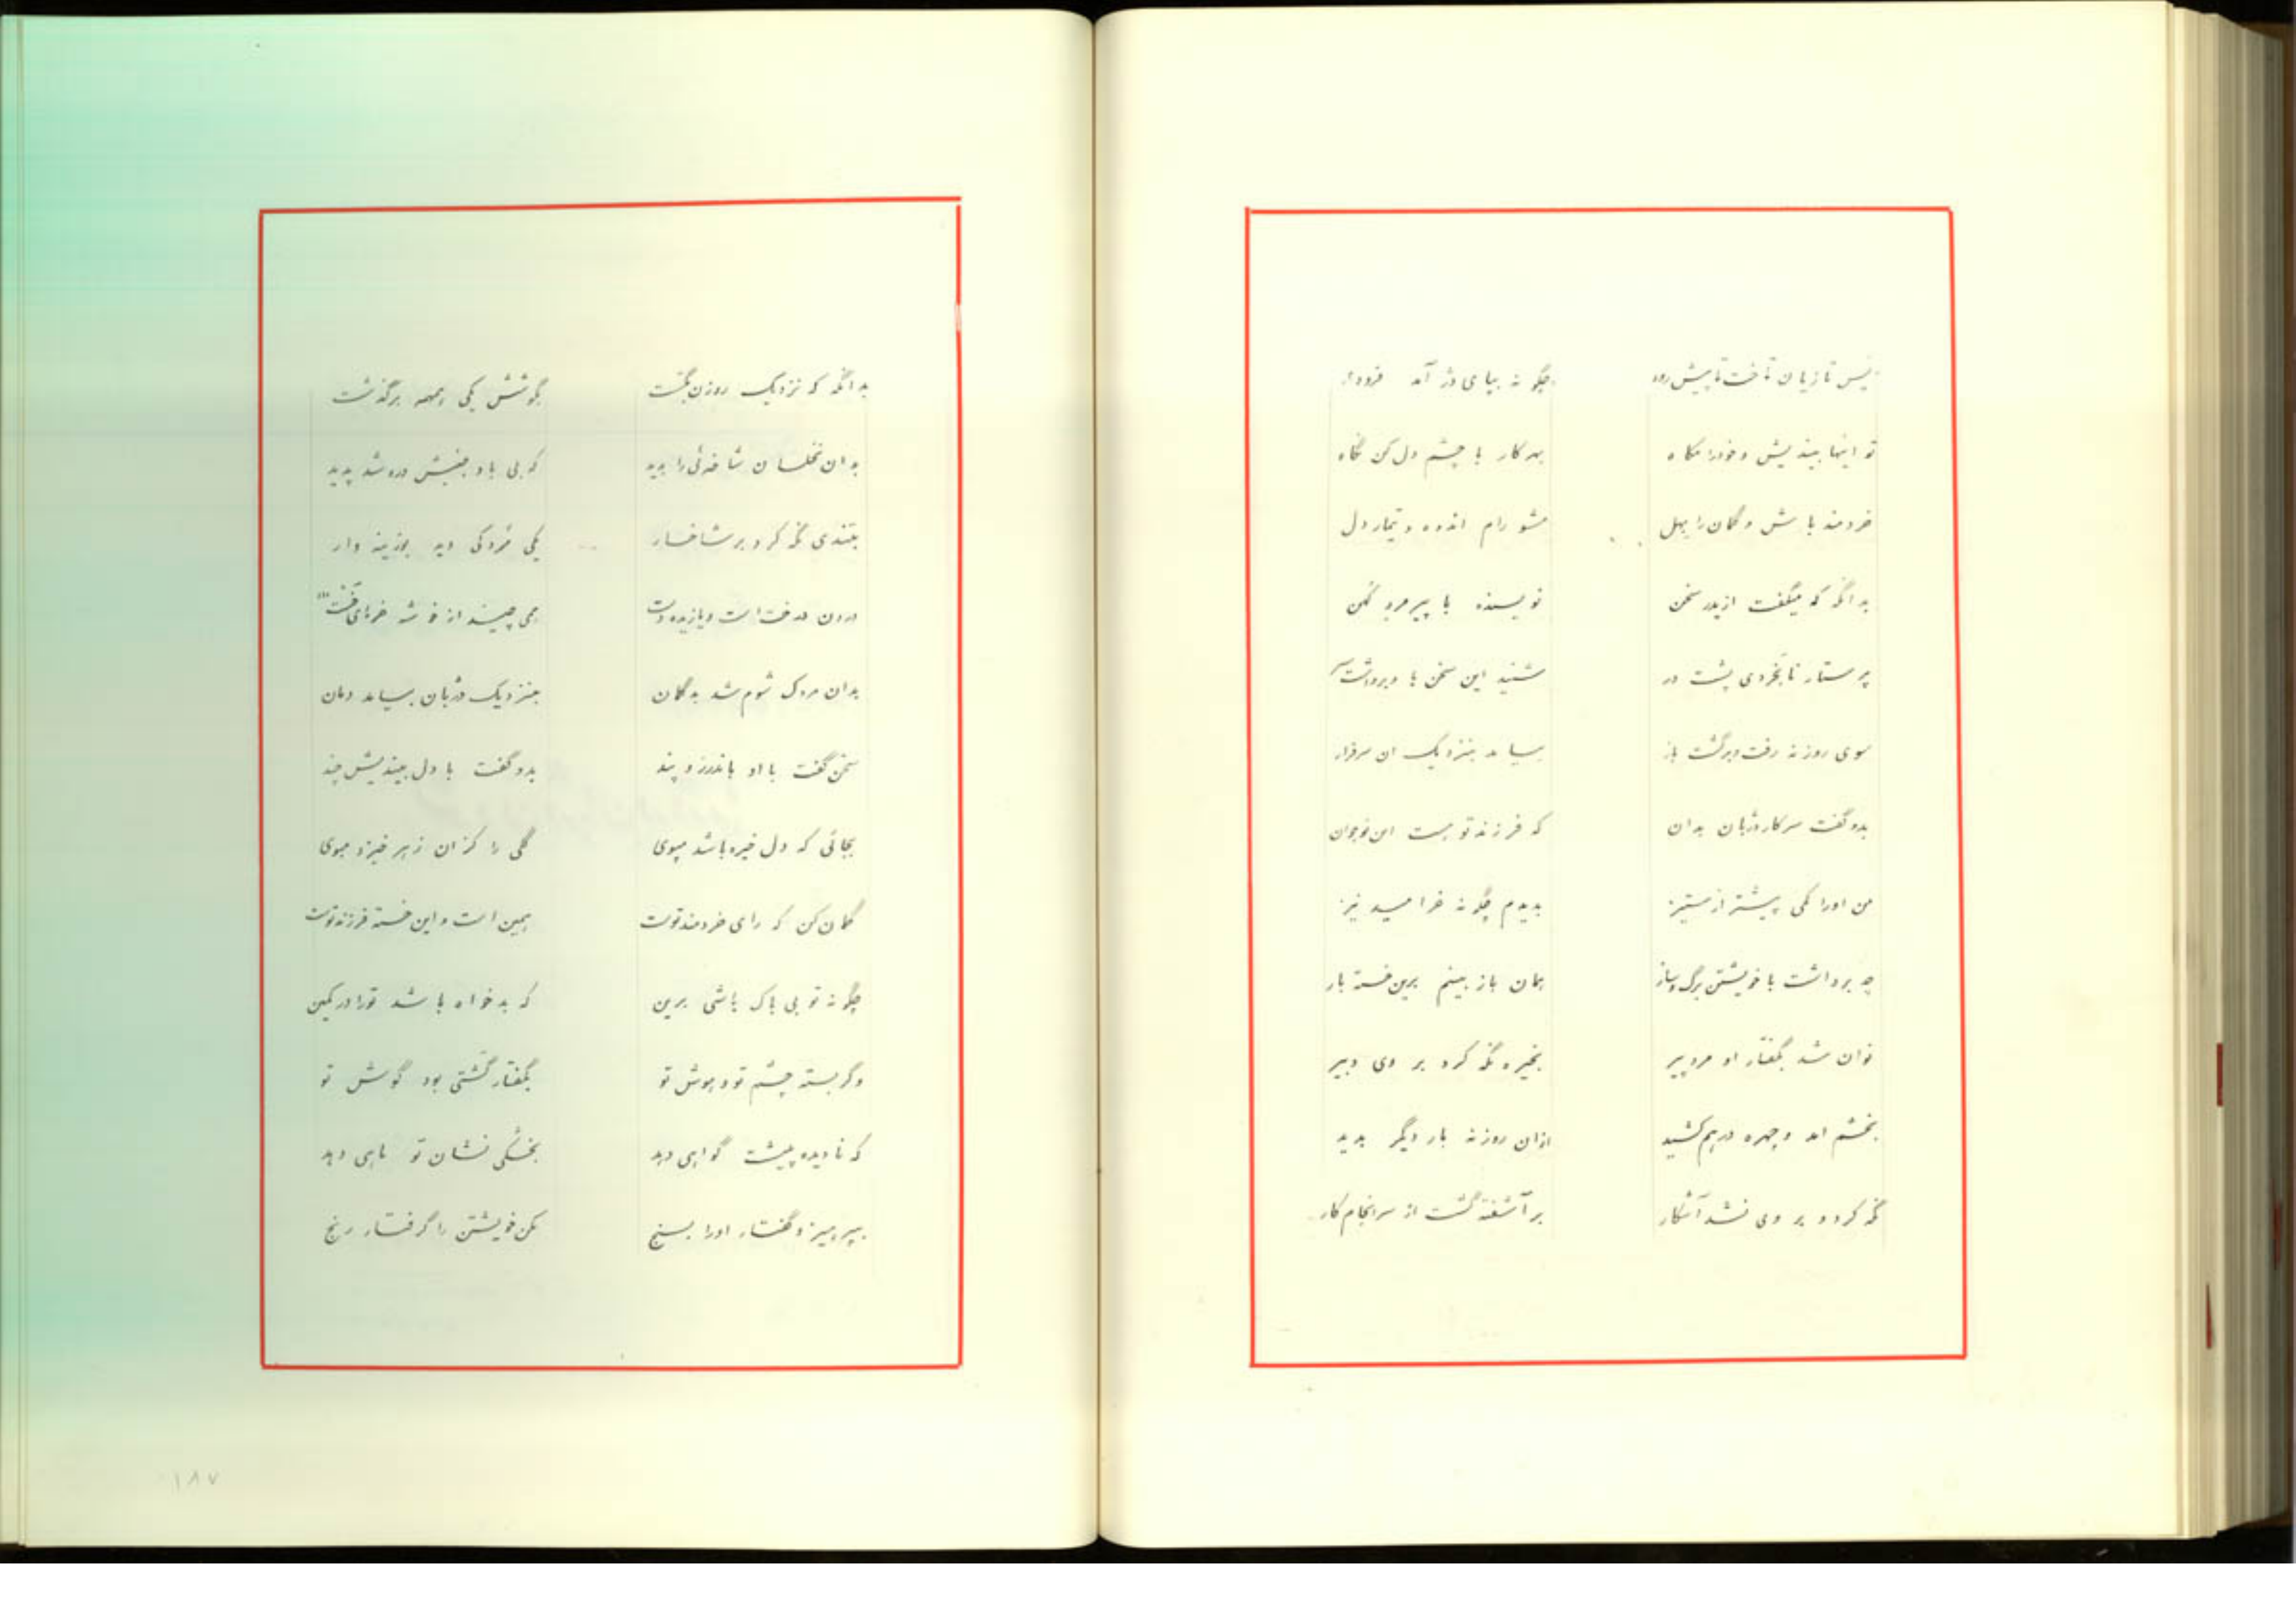 پس تازیان تاخت تا پیش رود چگونه بپای دژ آمد فرود
تو اینها بیندیش و خود را مکاه بهر کار با چشم دل کن نگاه
خردمند باش و گمان را بهل مشو رام اندوه و تیمار دل
بدانگه که میگفت ازیدر سخن نویسنده با پیرمرد کهن
پرستار نابخردی پشت در شنید این سخن با و برداشت سر
سوی روزنه رفت و برگشت باز بیامد بنزدیک ان سرفراز
بدو گفت سرکار دژبان بدان که فرزند تو هست این نوجوان
من او را کمی پیشتر از ستیز بدیدم چگونه خرامید نیز
چه برداشت با خویشتن برگ و ساز همان باز بینم برین خسته باز
نوان شد بگفتار او مرد پیر بخیره نگه کرد بر وی دبیر
بخشم امد و چهره درهم کشید ازان روزنه بار دیگر بدید
نگه کرد و بر وی نشد آشکار برآشفته گشت از سرانجام کار
بدانگه که نزدیک روزن بگشت بگوشش یکی همهمه برگذشت
بدان نخلسان شاخه‌ئی را بدید که بی باد جنبش درو شد پدید
بتندی نگه کرد بر شاخسار یکی مردکی دید بوزینه وار
درون درخت است و یازیده دست همی چیند از خوشه خرمای
بدان مردک شوم شد بدگمان بنزدیک دژبان بیامد دمان
سخن گفت با او باندرز و پند بدو گفت با دل بیندیش چند
بجائی که دل خیره باشد مپوی گلی را کزان زهر خیزد مبوی
گمان کن که رای خردمند تست همین است و این خسته فرزند تست
چگونه تو بی باک باشی برین که بدخواه باشد تو را در کمین
وگر بسته چشم تو و هوش تو بگفتار گشتی بود گوش تو
که نادیده پیشت گواهی دهد بخشکی نشان تو ماهی دهد
بپرهیز و گفتار او را بسنج مکن خویشتن را گرفتار رنج
۱۸۷